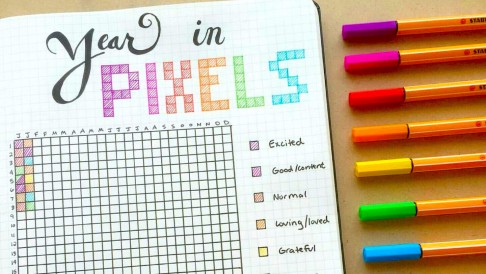 Year in
PIXELS
1
2
3
4
5
6
7
8
9
10
11
12
13
14
Excited
Good/content
Normal
loving/loved
Grateful